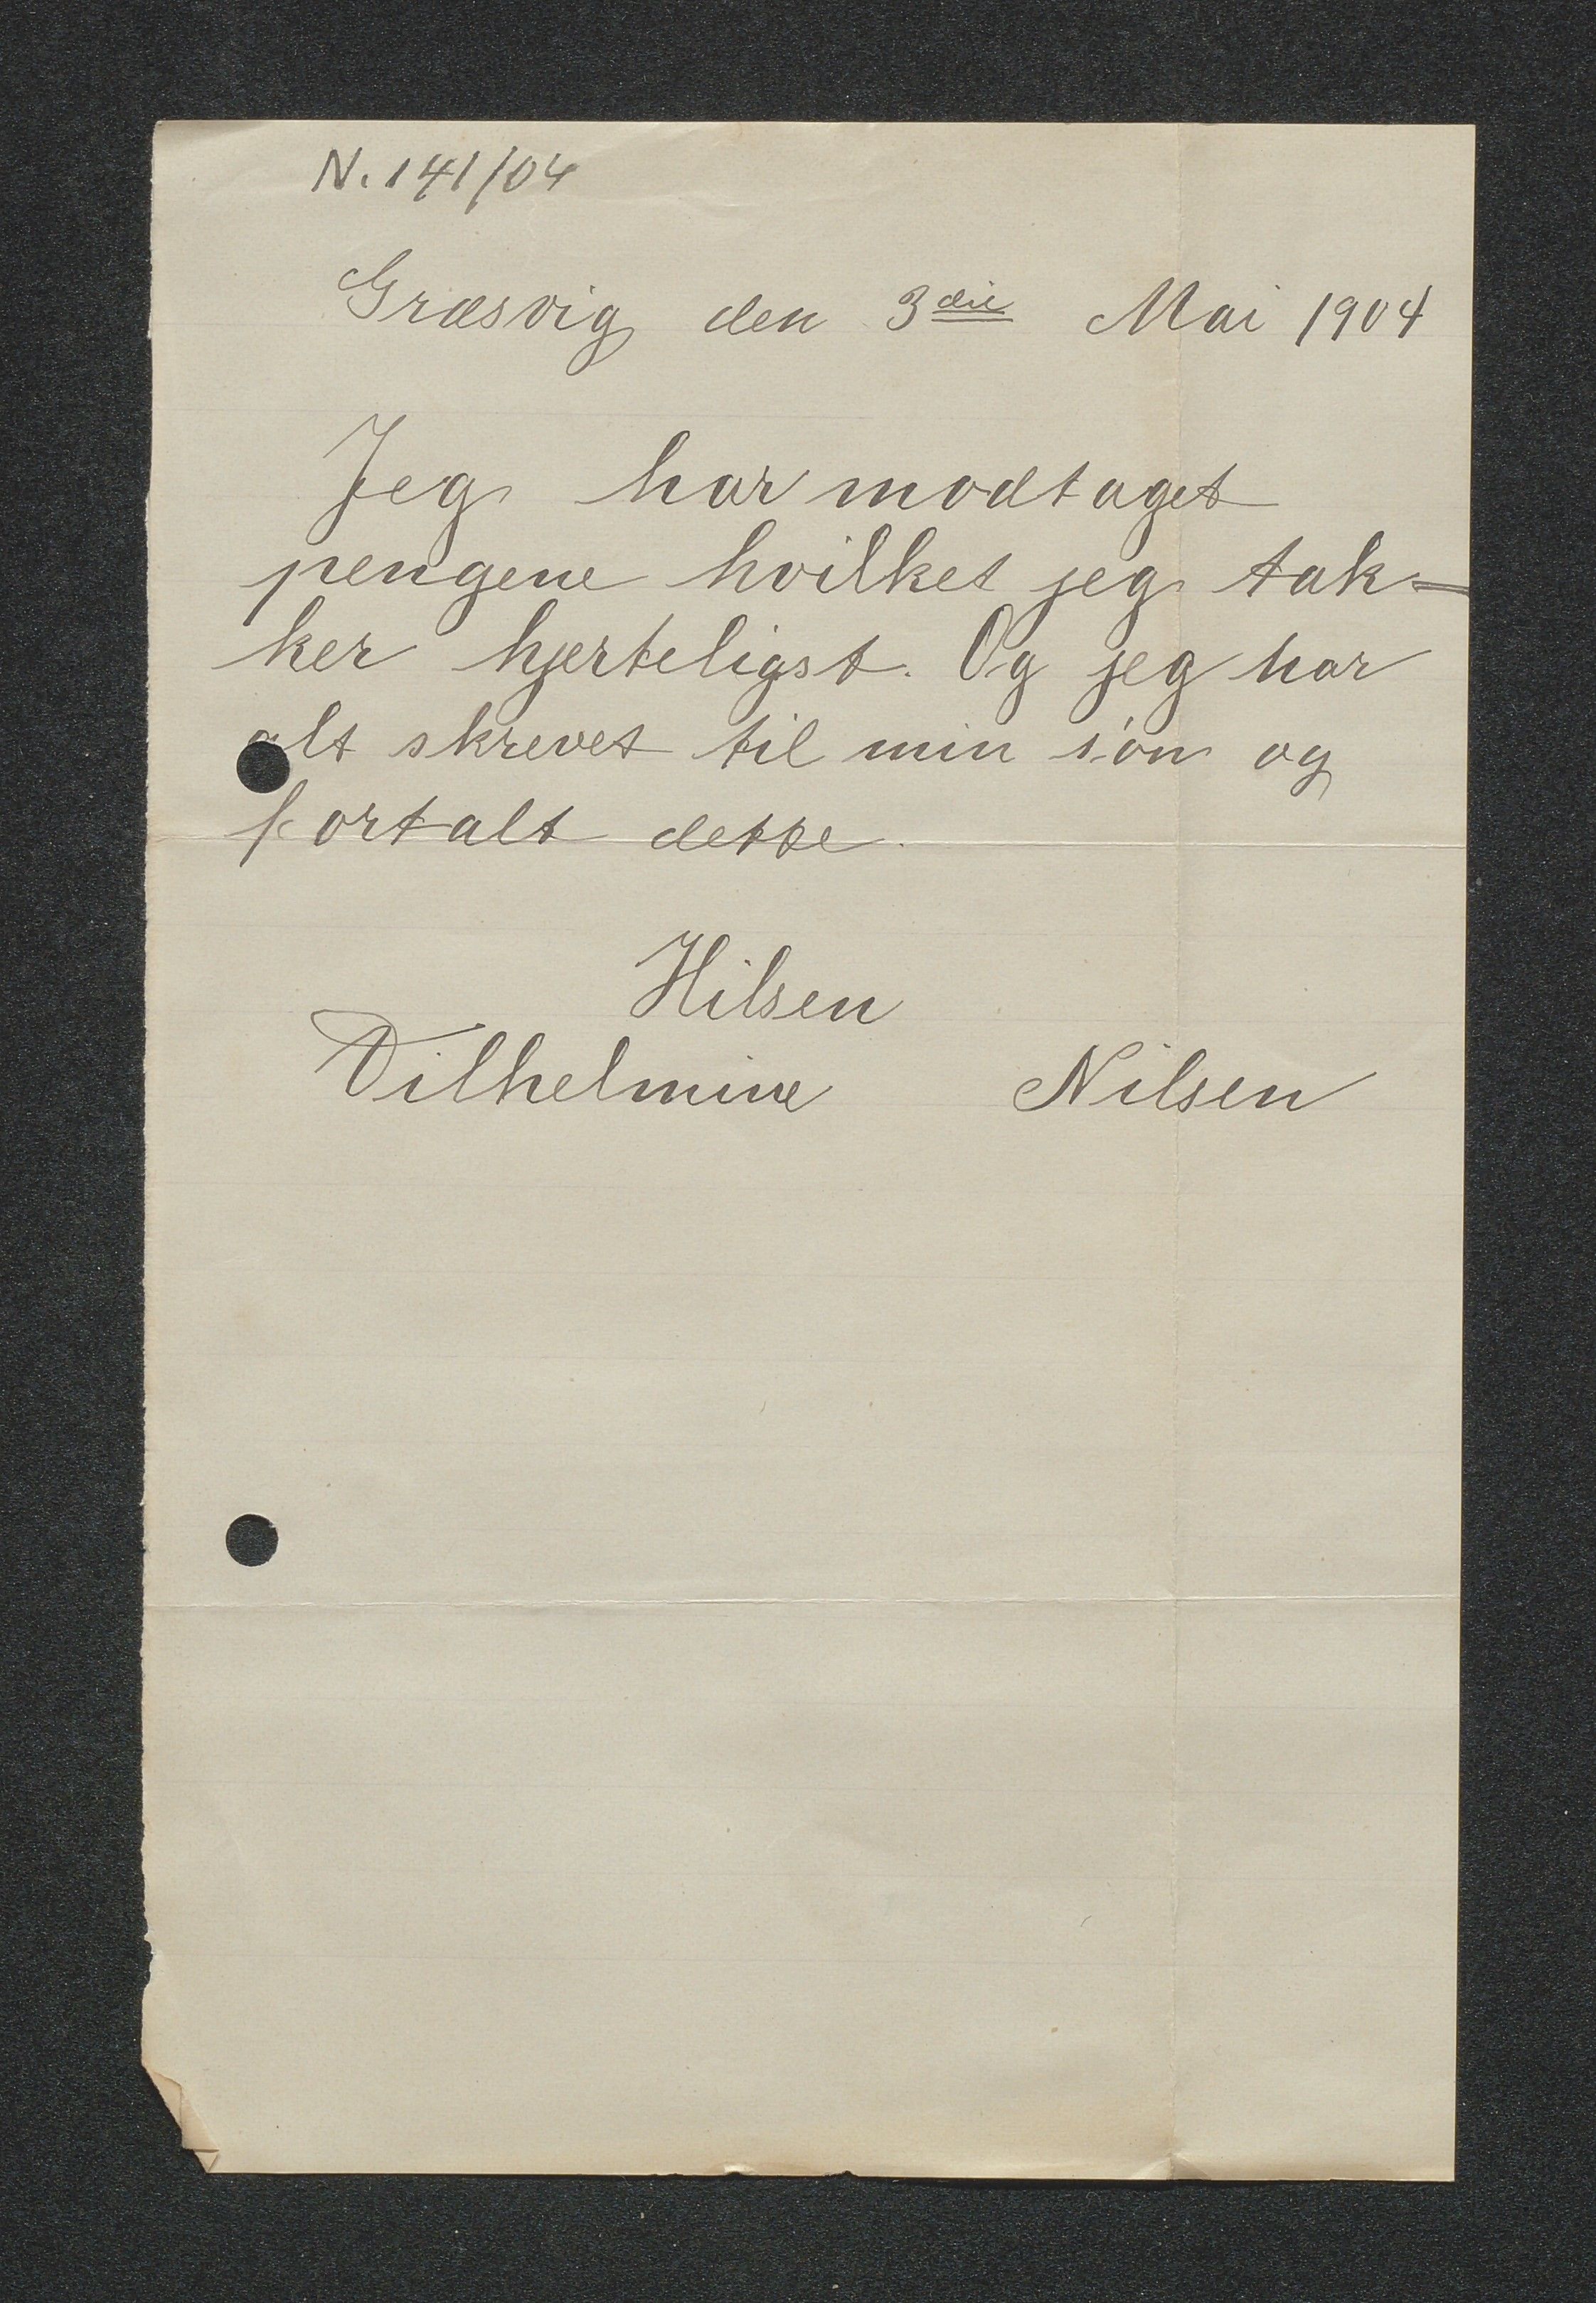 N. 141/04
Græsvig den 3die Mai 1904
Jeg har modtaget
pengene hvilket jeg tak-
ker hjerteligst. Og jeg har
alt skrevet til min søn og
fortalt dette.
Hilsen
Vilhelmine Nilsen